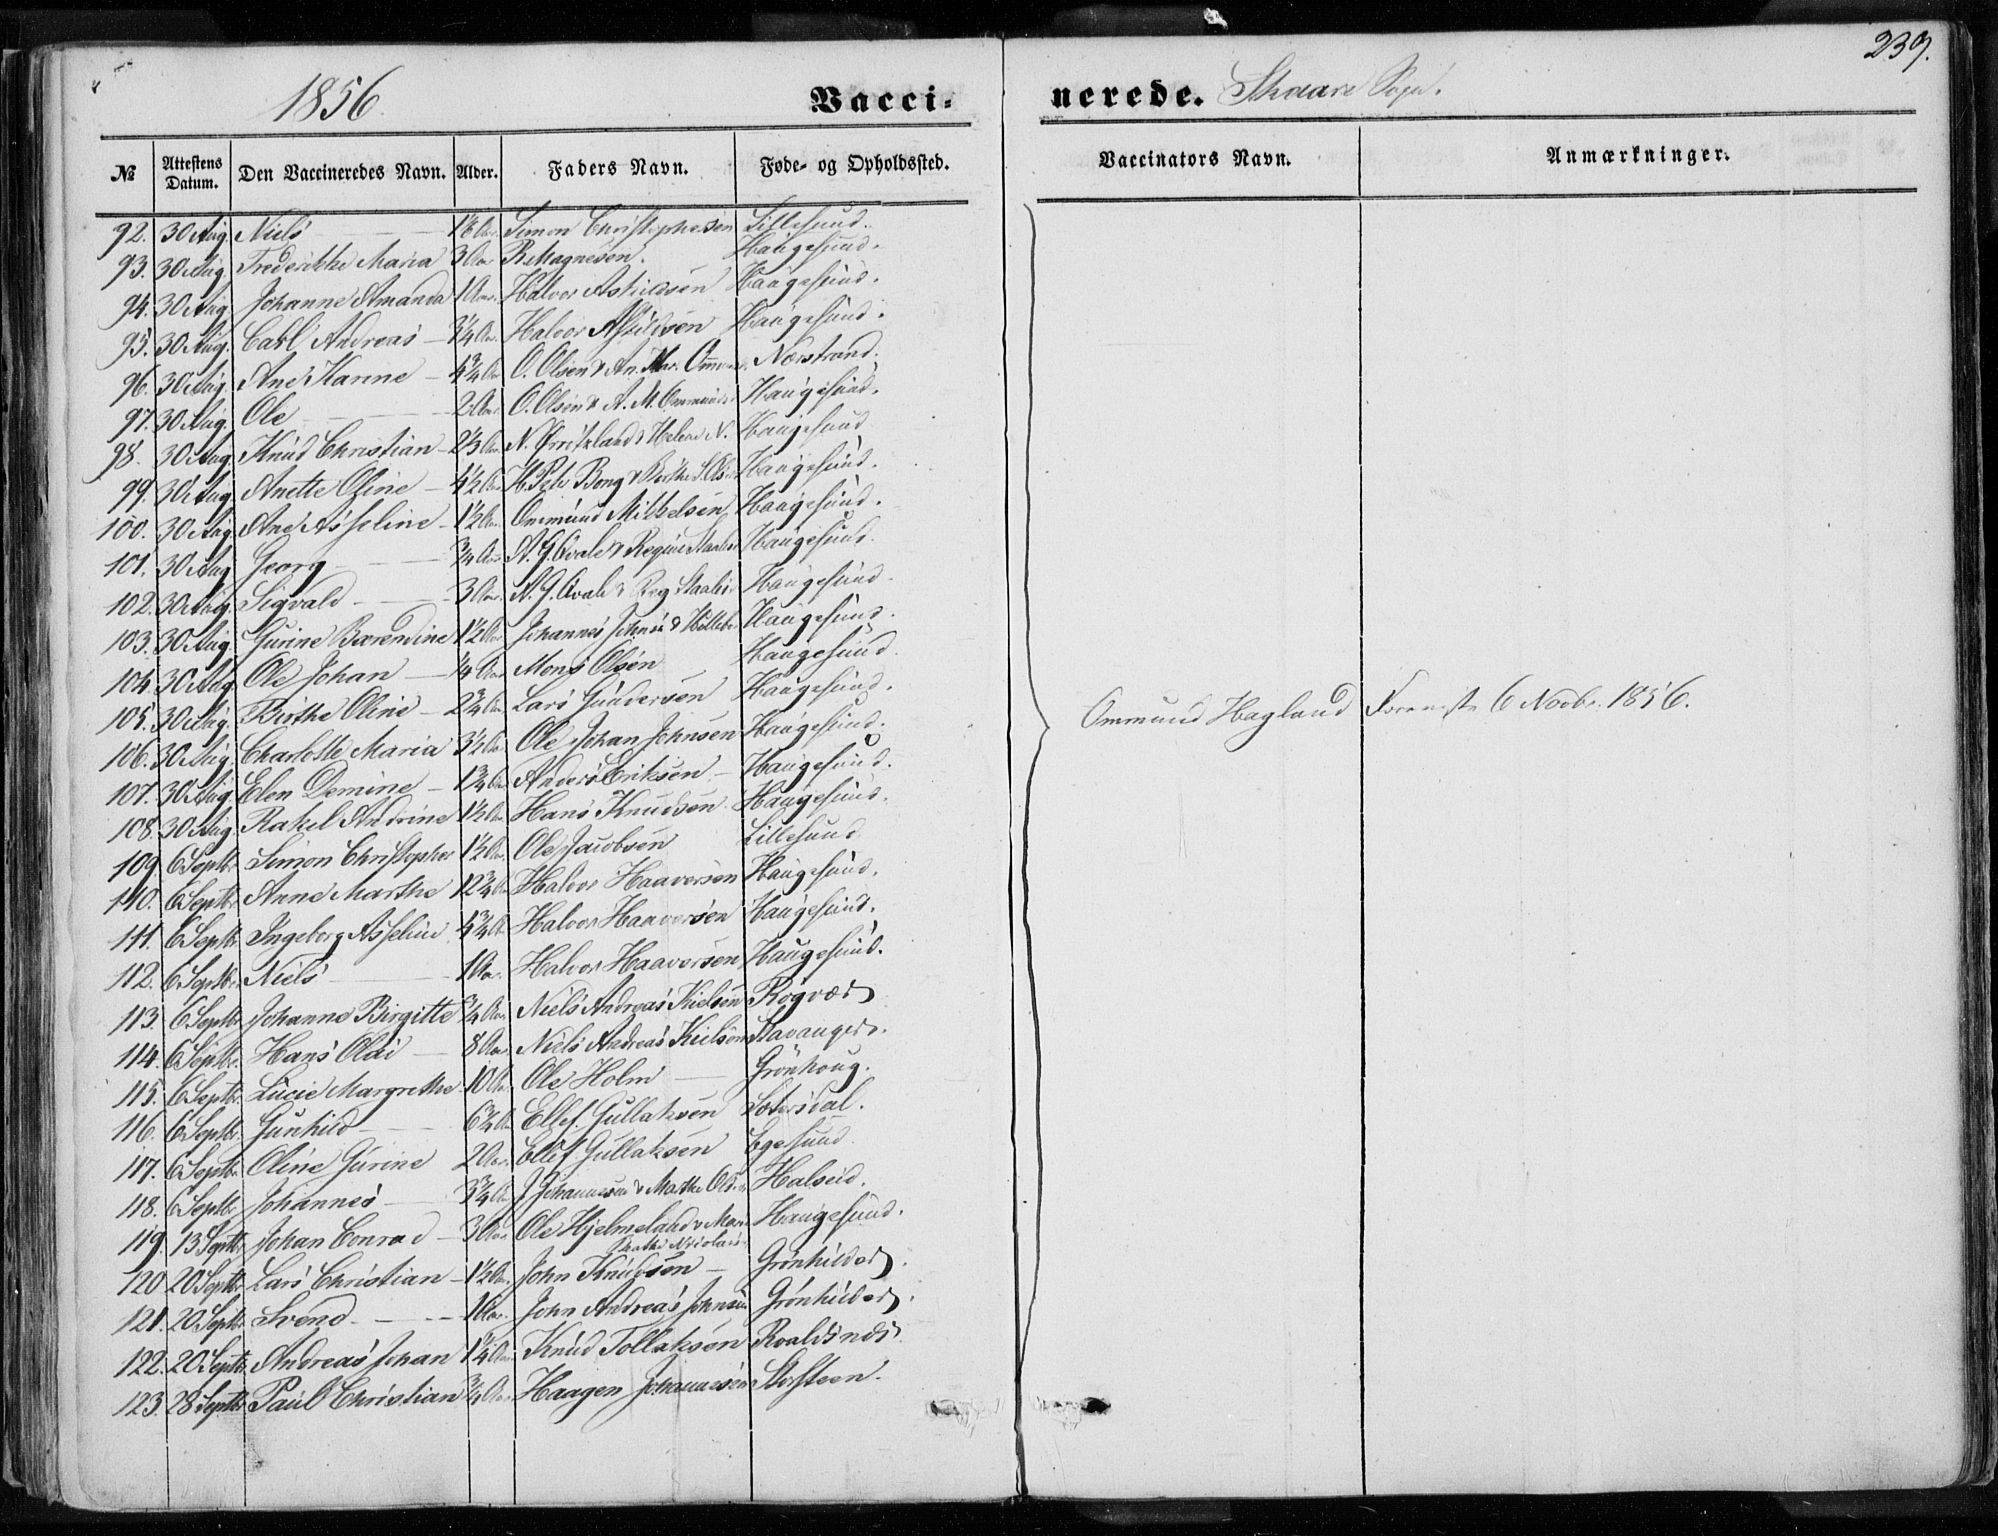 239.
1856.
Vacci-
nerede. Skaare Sogn.
№ Attestens Datum. Den Vaccineredes Navn. Alder. Faders Navn. Føde- og Opholdssted. Vaccinators Navn. Anmærkninger.
92. 30 Aug. Niels Aar Simon Christophersen Lillesund.
93. 30 Aug. Frederikke Maria 3 Aar Magnesen. Haugesund.
94. 30 Aug. Johanne Amanda 1 Aar. Halvor Haugesund.
95. 30 Aug. Carl Andreas Aar. Halvor Haugesund.
96. 30 Aug. Ane Karine 4 3/4 Aar O. Olsen & An. Mar. Nerstrand.
97. 30 Aug. Ole 2 Aar O. Olsen & A. M. Haugesund.
98. 30 Aug. Knud Christian Aar & Helene N. Haugesund
99. 30 Aug. Anette Oline 4 1/2 Aar H. Peter & Haugesund.
100. 30 Aug. Ane Asseline 1 1/2 Aar Ommund Mikkelsen Haugesund.
101. 30 Aug Georg 3/4 Aar A. G. Qvale & Regine Haugesund.
102. 30 Aug. Sigvald 3 Aar. A. G. Qvale & Reg Haugesund.
103. 30 Aug. Gurine Barendine 1 1/2 Aar Johannes & Haugesund.
104. 30 Aug. Ole Johan 1/4 Aar Mons Olsen Haugesund.
105. 30 Aug. Birthe Oline 2 3/4 Aar Lars Gundersen Haugesund.
106. 30 Aug. Charlotte Maria 3 1/2 Aar Ole Johan Johnsen Haugesund.
107. 30 Aug. Elen Demine 1 3/4 Aar Anders Eriksen Haugesund.
108. 30 Aug. Rakel Andrine 1 1/2 Aar Hans Knudsen Haugesund.
109 6 Septbr. Simon Christopher 1 1/2 Aar. Ole Jacobsen Lillesund
110. 6 Septbr. Anne Marthe 12 3/4 Aar Halvor Haaversen Haugesund.
111. 6 Septbr. Ingeborg Asseline 4 3/4 Aar Halvor Haaversen Haugesund.
112. 6 Septbr. Niels 1 Aar. Halvor Haaversen Haugesund.
113. 6 Septbr. Johanne Birgitte 3/4 Aar Niels Andreas Kielsen Røgvær
114. 6 Septbr. Hans Olai 8 Aar Niels Andreas Kielsen Stavanger.
115. 6 Septbr. Lucie Margrethe 10 Aar Ole Holm Grönhoug.
116. 6 Septbr. Gunhild 6 3/4 Aar Ellef Gullaksen Sætersdal.
117. 6 Septbr. Oline Gurine 2 Aar. Ellef Gullaksen Egersund.
118. 6 Septbr. Johannes 3 3/4 Aar J Johannesen & Marthe Ols Halseid.
119. 13 Septbr Johan Conrad 3 Aar Ole Hjelmeland & Haugesund.
120 20 Septbr. Lars Christian 1 1/2 Aar John Knudsen Grönhilder.
121. 20 Septbr Svend 1 Aar. John Andreas Johnsen Grönhilder.
122. 20 Septbr. Andreas Johan 1 1/4 Aar Knud Tollaksen Roaldsnes
123. 28 Septbr Paul Christian 3/4 Aar Haagen Johannesen Storsteen.
Ommund Hagland 6 Novbr. 1856.